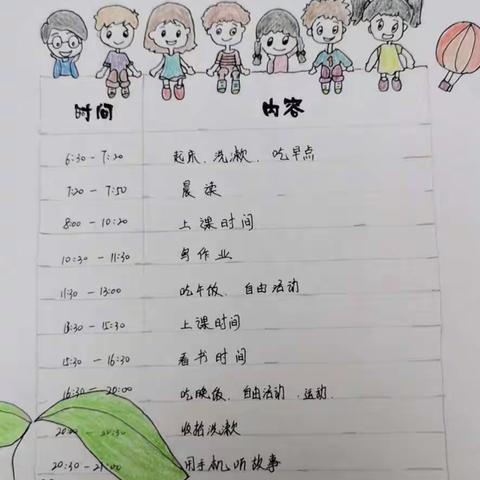 时间 内容
6:30-7:20 起床、洗漱、吃早点
7:20-7:50 晨读
8:00-10:20 上课时间
10:30-11:30 写作业
11:30-13:00 吃午饭、自由活动
13:30-15:30 上课时间
15:30-16:30 看书时间
16:30-20:00 吃晚饭、自由活动、运动.
20:00-20:30 收拾洗漱
20:30-21:00 用手机听故事